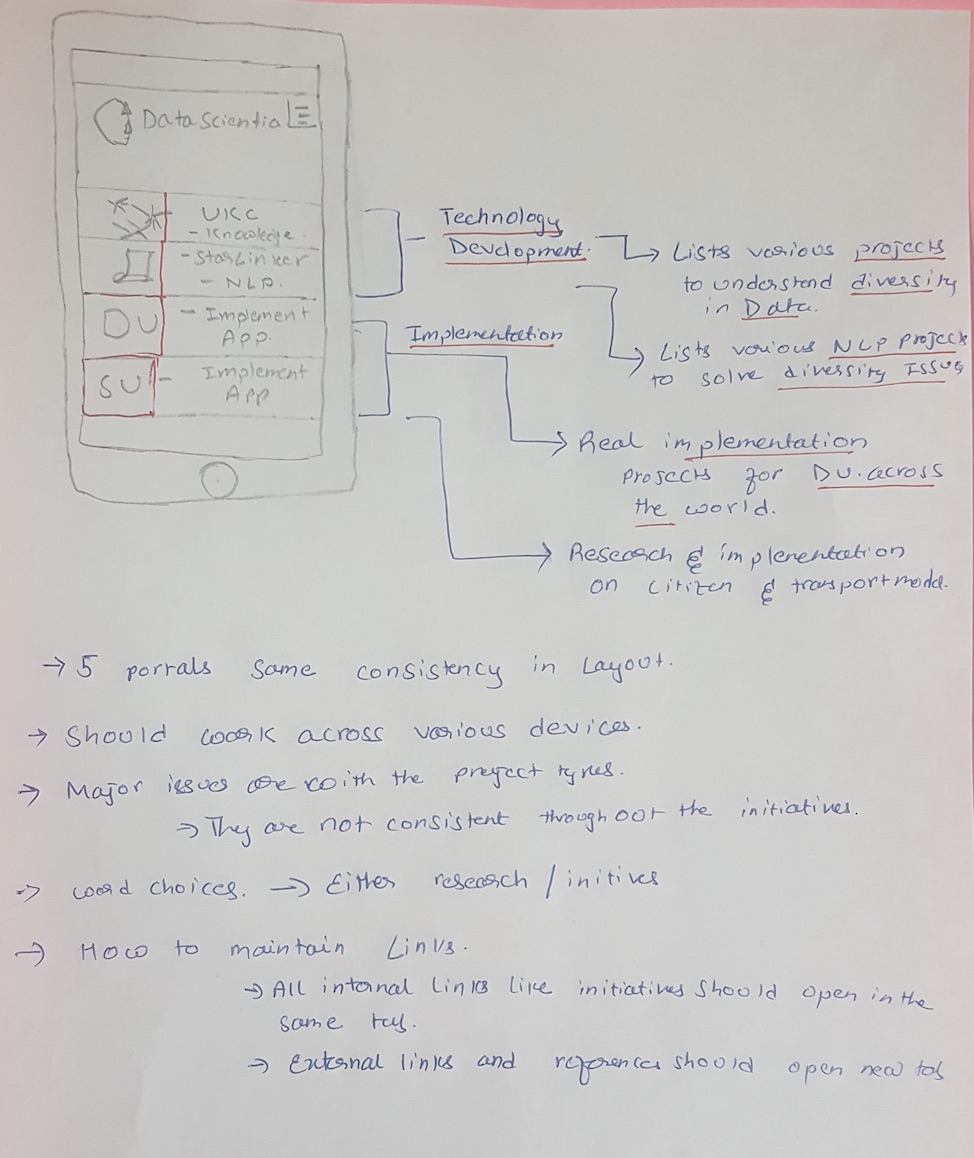 DataScientia
UKC
- Knowledge.
- StarLinker
- NLP.
DU - Implement
App.
SU - Implement
App
Technology
Development.
Lists various projects
to understand diversity
in Data.
Implementation
Lists various NLP project
to solve diversity Issus
Real implementation
projects for DU. across
the world.
Research & implenentation
on citizen & transport model.
→ 5 porrals same consistency in Layout.
→ Should work across various devices.
→ Major issues are with the project types.
→ They are not consistent throughout the initiatives.
→ word choices. → Either research / initives
→ How to maintain Links.
→ All internal links like initiatives should open in the
same tab.
→ External links and references should open new tab